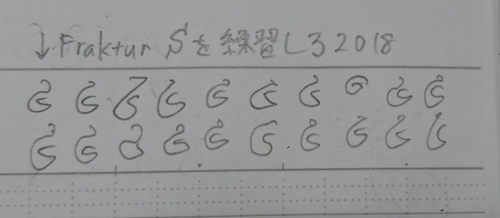 ↓Fraktur Sを練習しろ2018
𝔖 𝔖 𝔖 𝔖 𝔖 𝔖 𝔖 𝔖 𝔖 𝔖
𝔖 𝔖 𝔖 𝔖 𝔖 𝔖 𝔖 𝔖 𝔖 𝔖